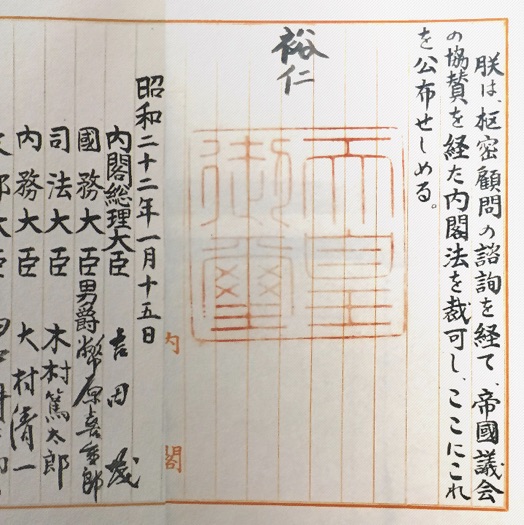 朕は、枢密顧問の諮詢を経て、帝國議会
の協賛を経た内閣法を裁可し、ここにこれ
を公布せしめる。
裕仁
天皇
御璽
内閣
昭和二十二年一月十五日
内閣総理大臣 吉田茂
國務大臣男爵幣原喜重郎
司法大臣 木村篤太郎
内務大臣 大村清一
文部大臣 田中耕太郎